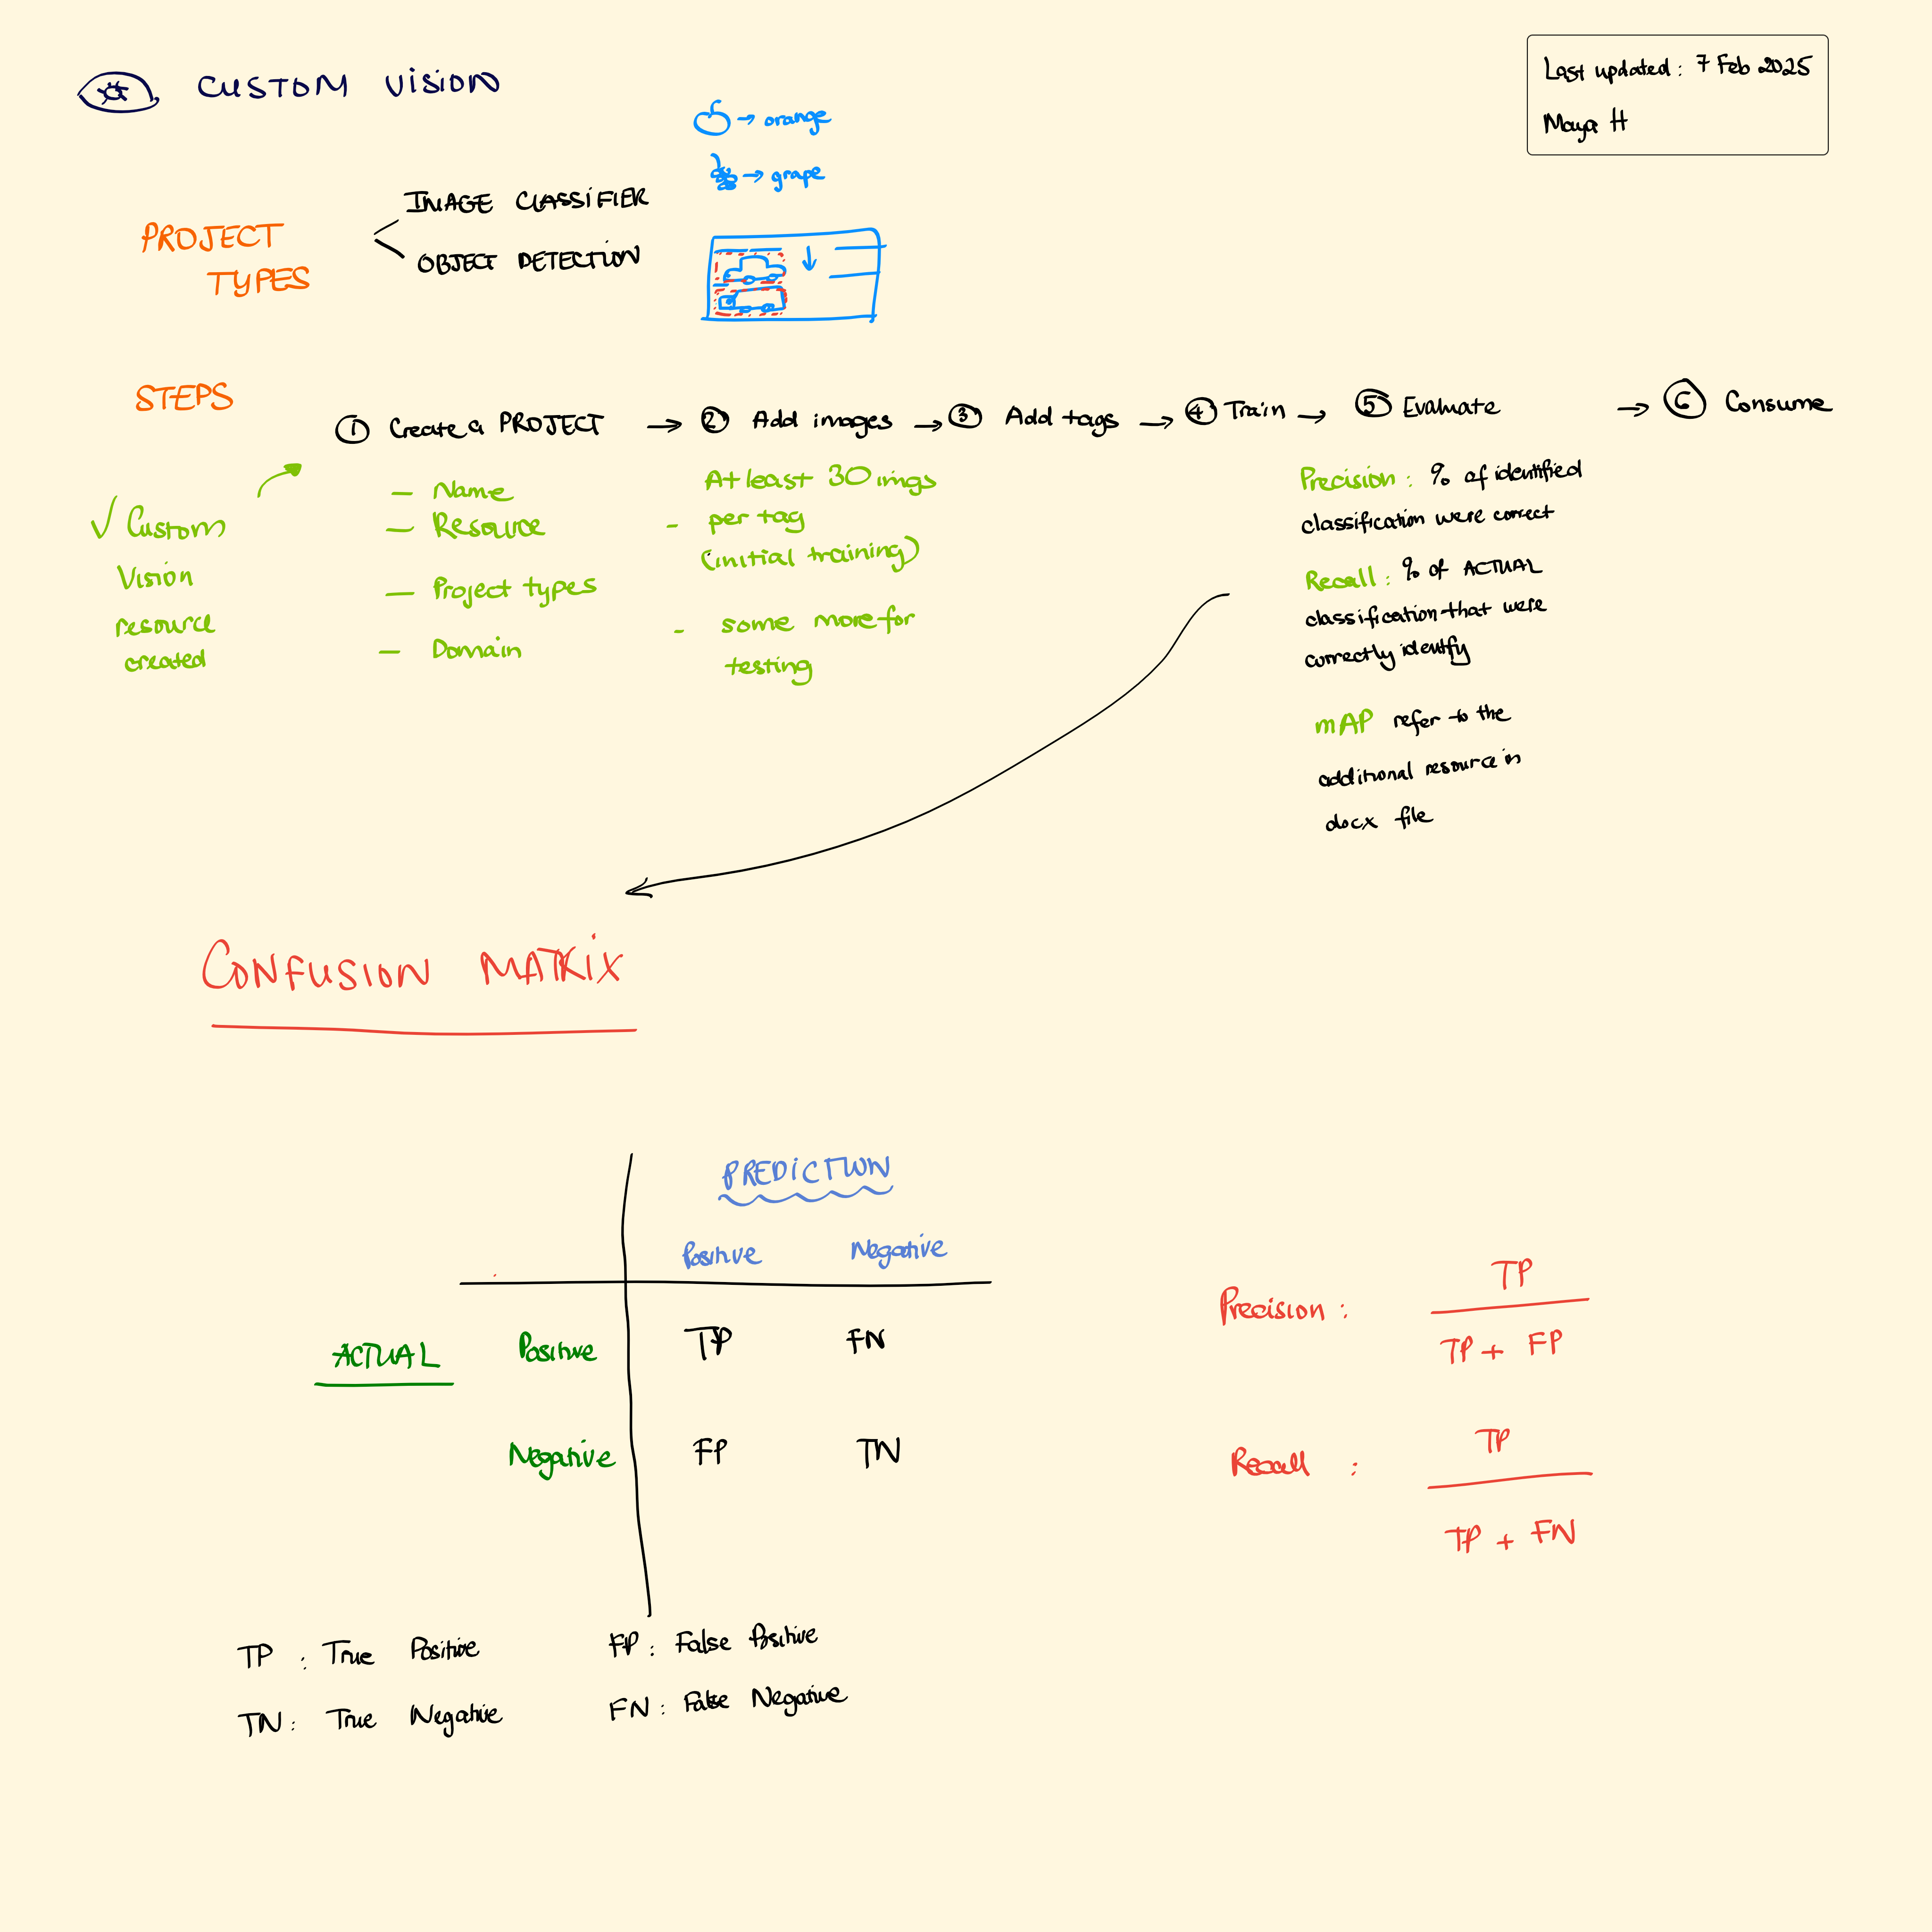 CUSTOM VISION
Last updated : 7 Feb 2025
Maya H
→ orange
→ grape
PROJECT
TYPES
IMAGE CLASSIFIER
OBJECT DETECTION
STEPS
① Create a PROJECT → ② Add images → ③ Add tags → ④ Train → ⑤ Evaluate → ⑥ Consume
✓ Custom
Vision
resource
created
— Name
— Resource
— Project types
— Domain
At least 30 imgs
- per tag
(initial training)
- some more for
testing
Precision : % of identified
classification were correct
Recall : % of ACTUAL
classification that were
correctly identify
mAP refer to the
additional resource in
docx file
CONFUSION MATRIX
PREDICTION
Positive Negative
ACTUAL Positive TP FN
Negative FP TN
Precision : TP
TP + FP
Recall : TP
TP + FN
TP : True Positive FP : False Positive
TN : True Negative FN : False Negative